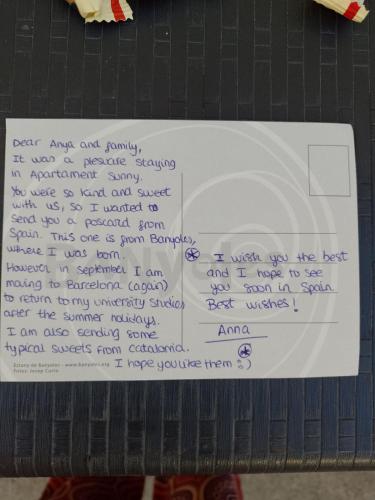 Dear Anya and family,
It was a plesure staying
in Apartament Sunny.
You were so kind and sweet
with us, so I wanted to
send you a poscard from
Spain. This one is from Banyoles,
where I was born.
However in september I am
moving to Barcelona (again)
to return to my university studies
after the summer holidays.
I am also sending some
typical sweets from catalonia.
I hope you like them :)
I wish you the best
and I hope to see
you soon in Spain.
Best wishes!
Anna
Estany de Banyoles - www.banyoles.org
Fotos: Josep Curto